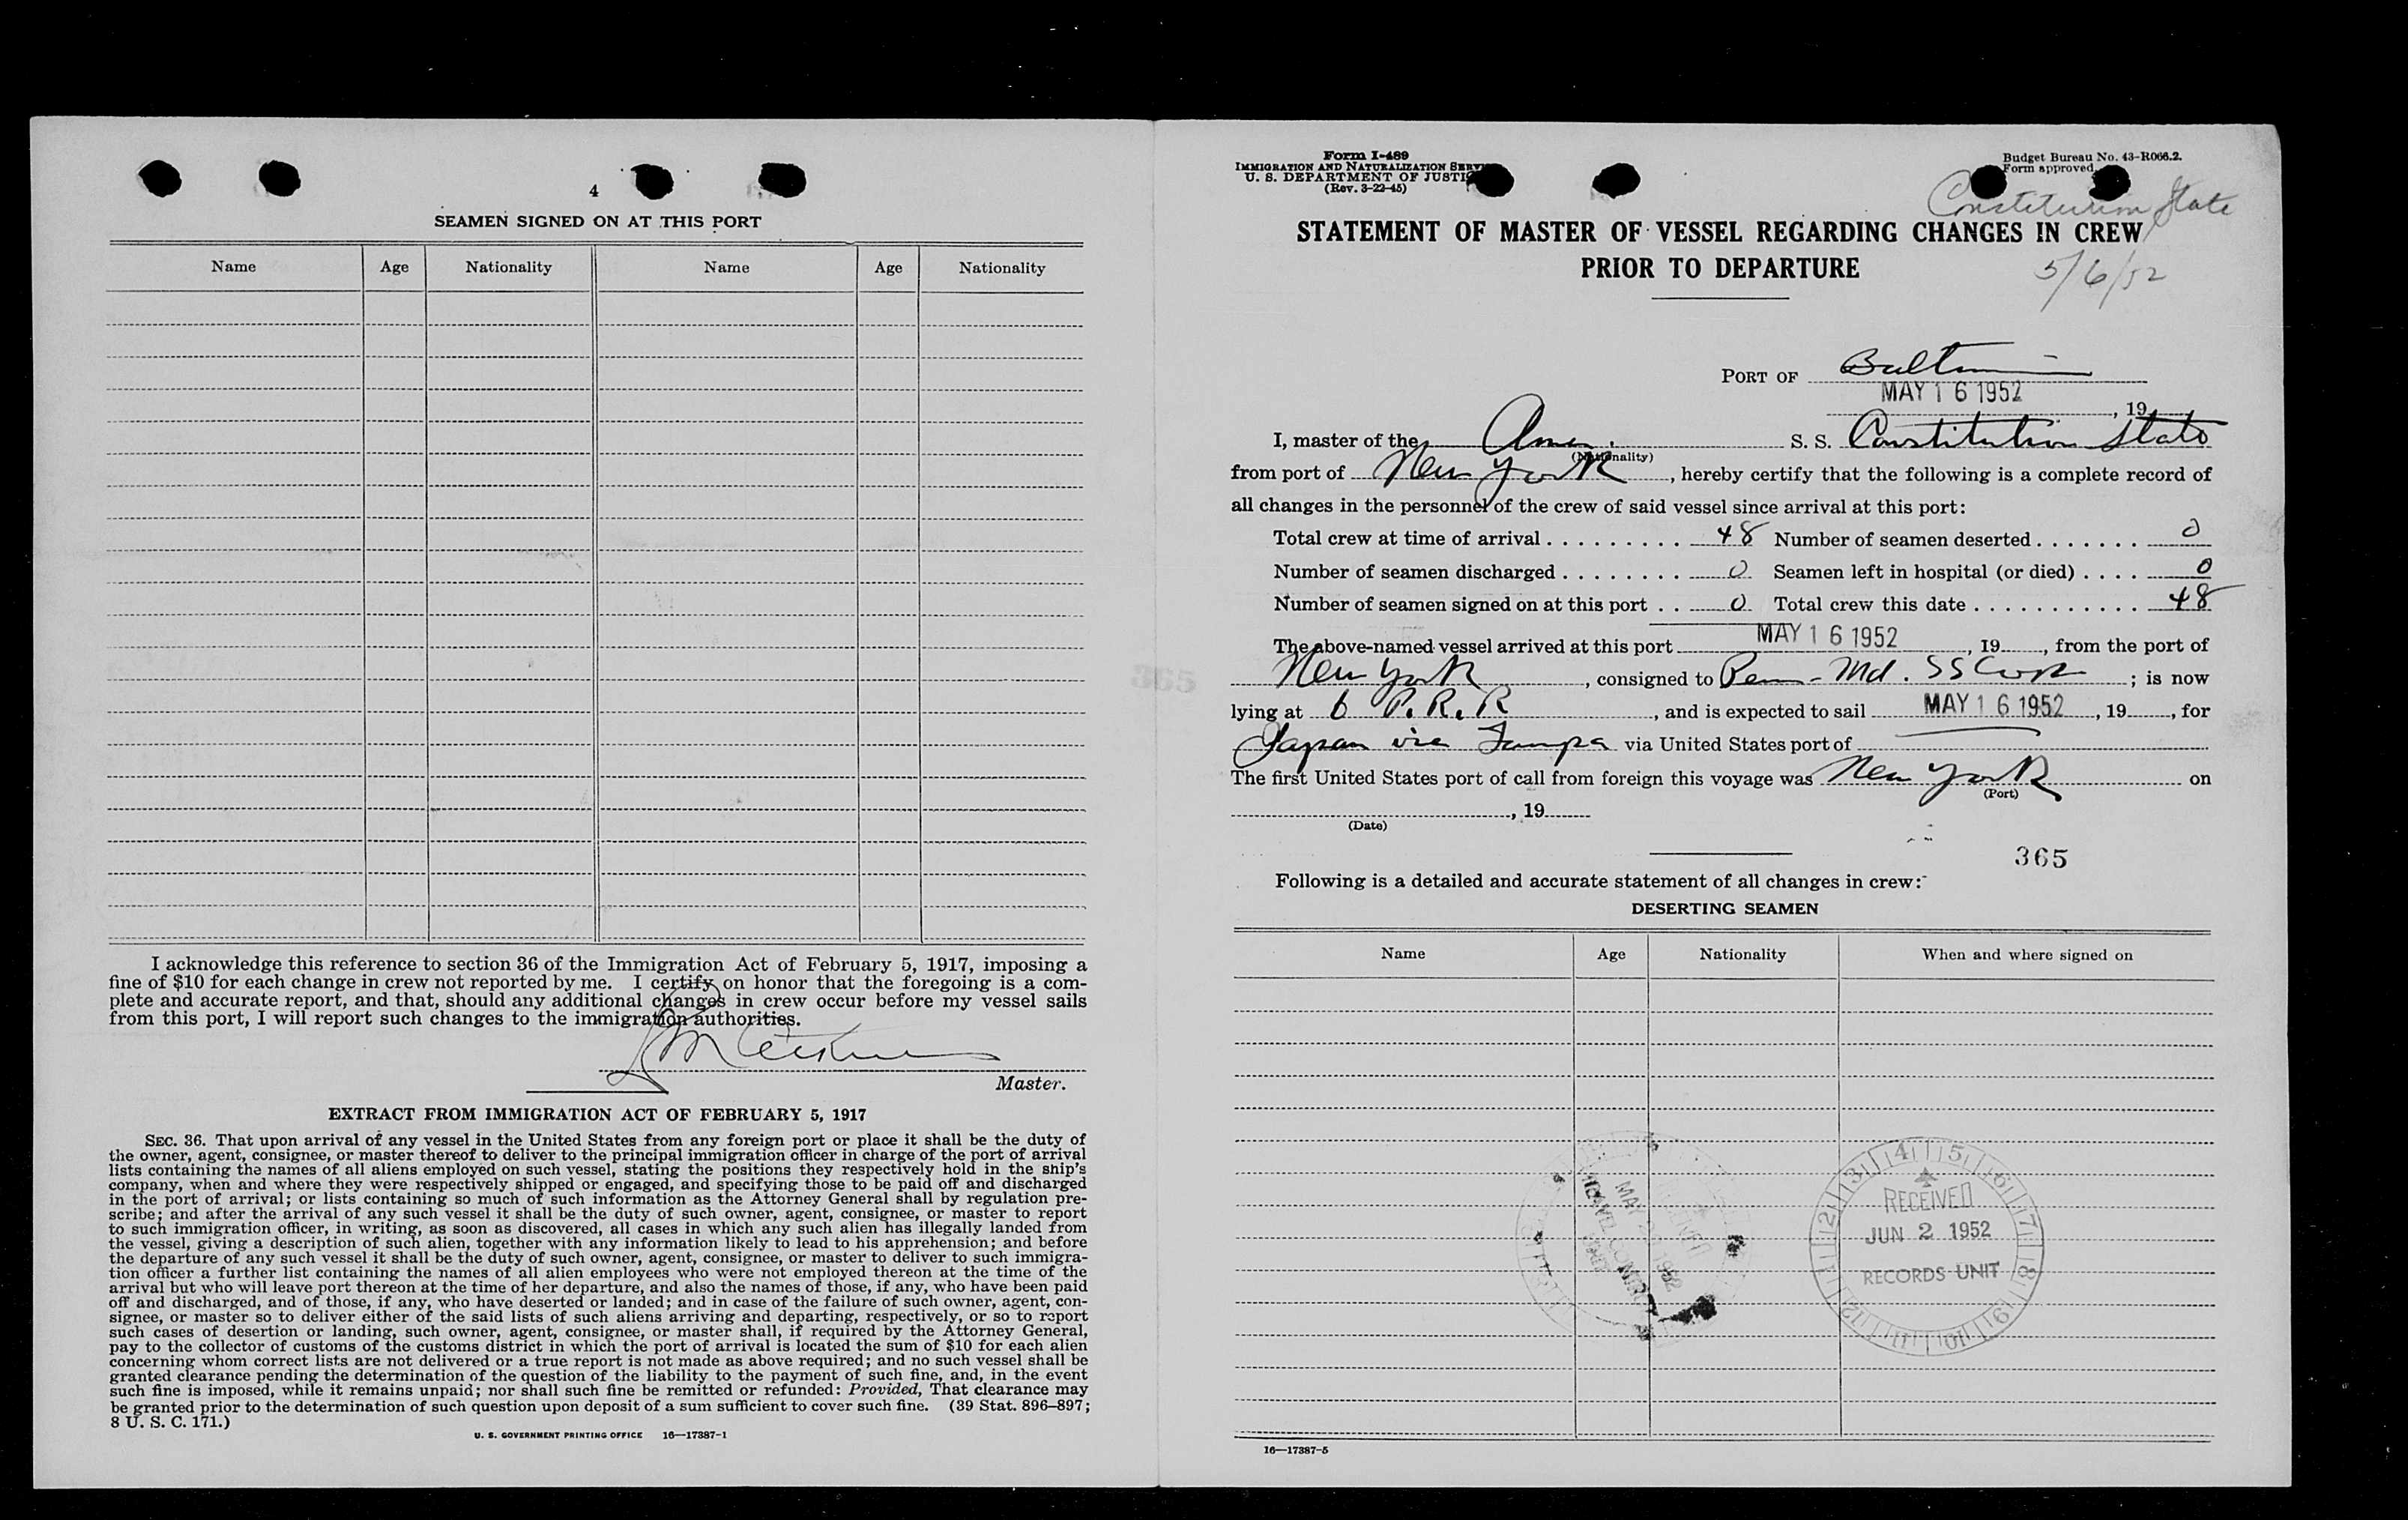 4
SEAMEN SIGNED ON AT THIS PORT
Name Age Nationality Name Age Nationality
I acknowledge this reference to section 36 of the Immigration Act of February 5, 1917, imposing a
fine of $10 for each change in crew not reported by me. I certify on honor that the foregoing is a com-
plete and accurate report, and that, should any additional changes in crew occur before my vessel sails
from this port, I will report such changes to the immigration authorities.
Master.
EXTRACT FROM IMMIGRATION ACT OF FEBRUARY 5, 1917
SEC. 36. That upon arrival of any vessel in the United States from any foreign port or place it shall be the duty of
the owner, agent, consignee, or master thereof to deliver to the principal immigration officer in charge of the port of arrival
lists containing the names of all aliens employed on such vessel, stating the positions they respectively hold in the ship's
company, when and where they were respectively shipped or engaged, and specifying those to be paid off and discharged
in the port of arrival; or lists containing so much of such information as the Attorney General shall by regulation pre-
scribe; and after the arrival of any such vessel it shall be the duty of such owner, agent, consignee, or master to report
to such immigration officer, in writing, as soon as discovered, all cases in which any such alien has illegally landed from
the vessel, giving a description of such alien, together with any information likely to lead to his apprehension; and before
the departure of any such vessel it shall be the duty of such owner, agent, consignee, or master to deliver to such immigra-
tion officer a further list containing the names of all alien employees who were not employed thereon at the time of the
arrival but who will leave port thereon at the time of her departure, and also the names of those, if any, who have been paid
off and discharged, and of those, if any, who have deserted or landed; and in case of the failure of such owner, agent, con-
signee, or master so to deliver either of the said lists of such aliens arriving and departing, respectively, or so to report
such cases of desertion or landing, such owner, agent, consignee, or master shall, if required by the Attorney General,
pay to the collector of customs of the customs district in which the port of arrival is located the sum of $10 for each alien
concerning whom correct lists are not delivered or a true report is not made as above required; and no such vessel shall be
granted clearance pending the determination of the question of the liability to the payment of such fine, and, in the event
such fine is imposed, while it remains unpaid; nor shall such fine be remitted or refunded: Provided, That clearance may
be granted prior to the determination of such question upon deposit of a sum sufficient to cover such fine. (39 Stat. 896–897;
8 U. S. C. 171.)
U. S. GOVERNMENT PRINTING OFFICE 16—17387-1
Form I-489
IMMIGRATION AND NATURALIZATION
U. S. DEPARTMENT OF
(Rev. 3-22-45)
Budget Bureau No. 43-R066.2.
Form approved.
Constitution State
STATEMENT OF MASTER OF VESSEL REGARDING CHANGES IN CREW
PRIOR TO DEPARTURE
5/6/52
PORT OF Baltimore
MAY 16 1952, 19
I, master of the Amer. S. S. Constitution State
(Nationality)
from port of New York, hereby certify that the following is a complete record of
all changes in the personnel of the crew of said vessel since arrival at this port:
Total crew at time of arrival 48 Number of seamen deserted 0
Number of seamen discharged 0 Seamen left in hospital (or died) 0
Number of seamen signed on at this port 0 Total crew this date 48
The above-named vessel arrived at this port MAY 16 1952, 19, from the port of
New York, consigned to Penn-Md. SS Corp; is now
lying at 6 P.R.R, and is expected to sail MAY 16 1952, 19, for
Japan via Tampa via United States port of
The first United States port of call from foreign this voyage was New York on
(Port)
, 19
(Date)
365
Following is a detailed and accurate statement of all changes in crew:
DESERTING SEAMEN
Name Age Nationality When and where signed on
RECEIVED
JUN 2 1952
RECORDS UNIT
16—17387-5